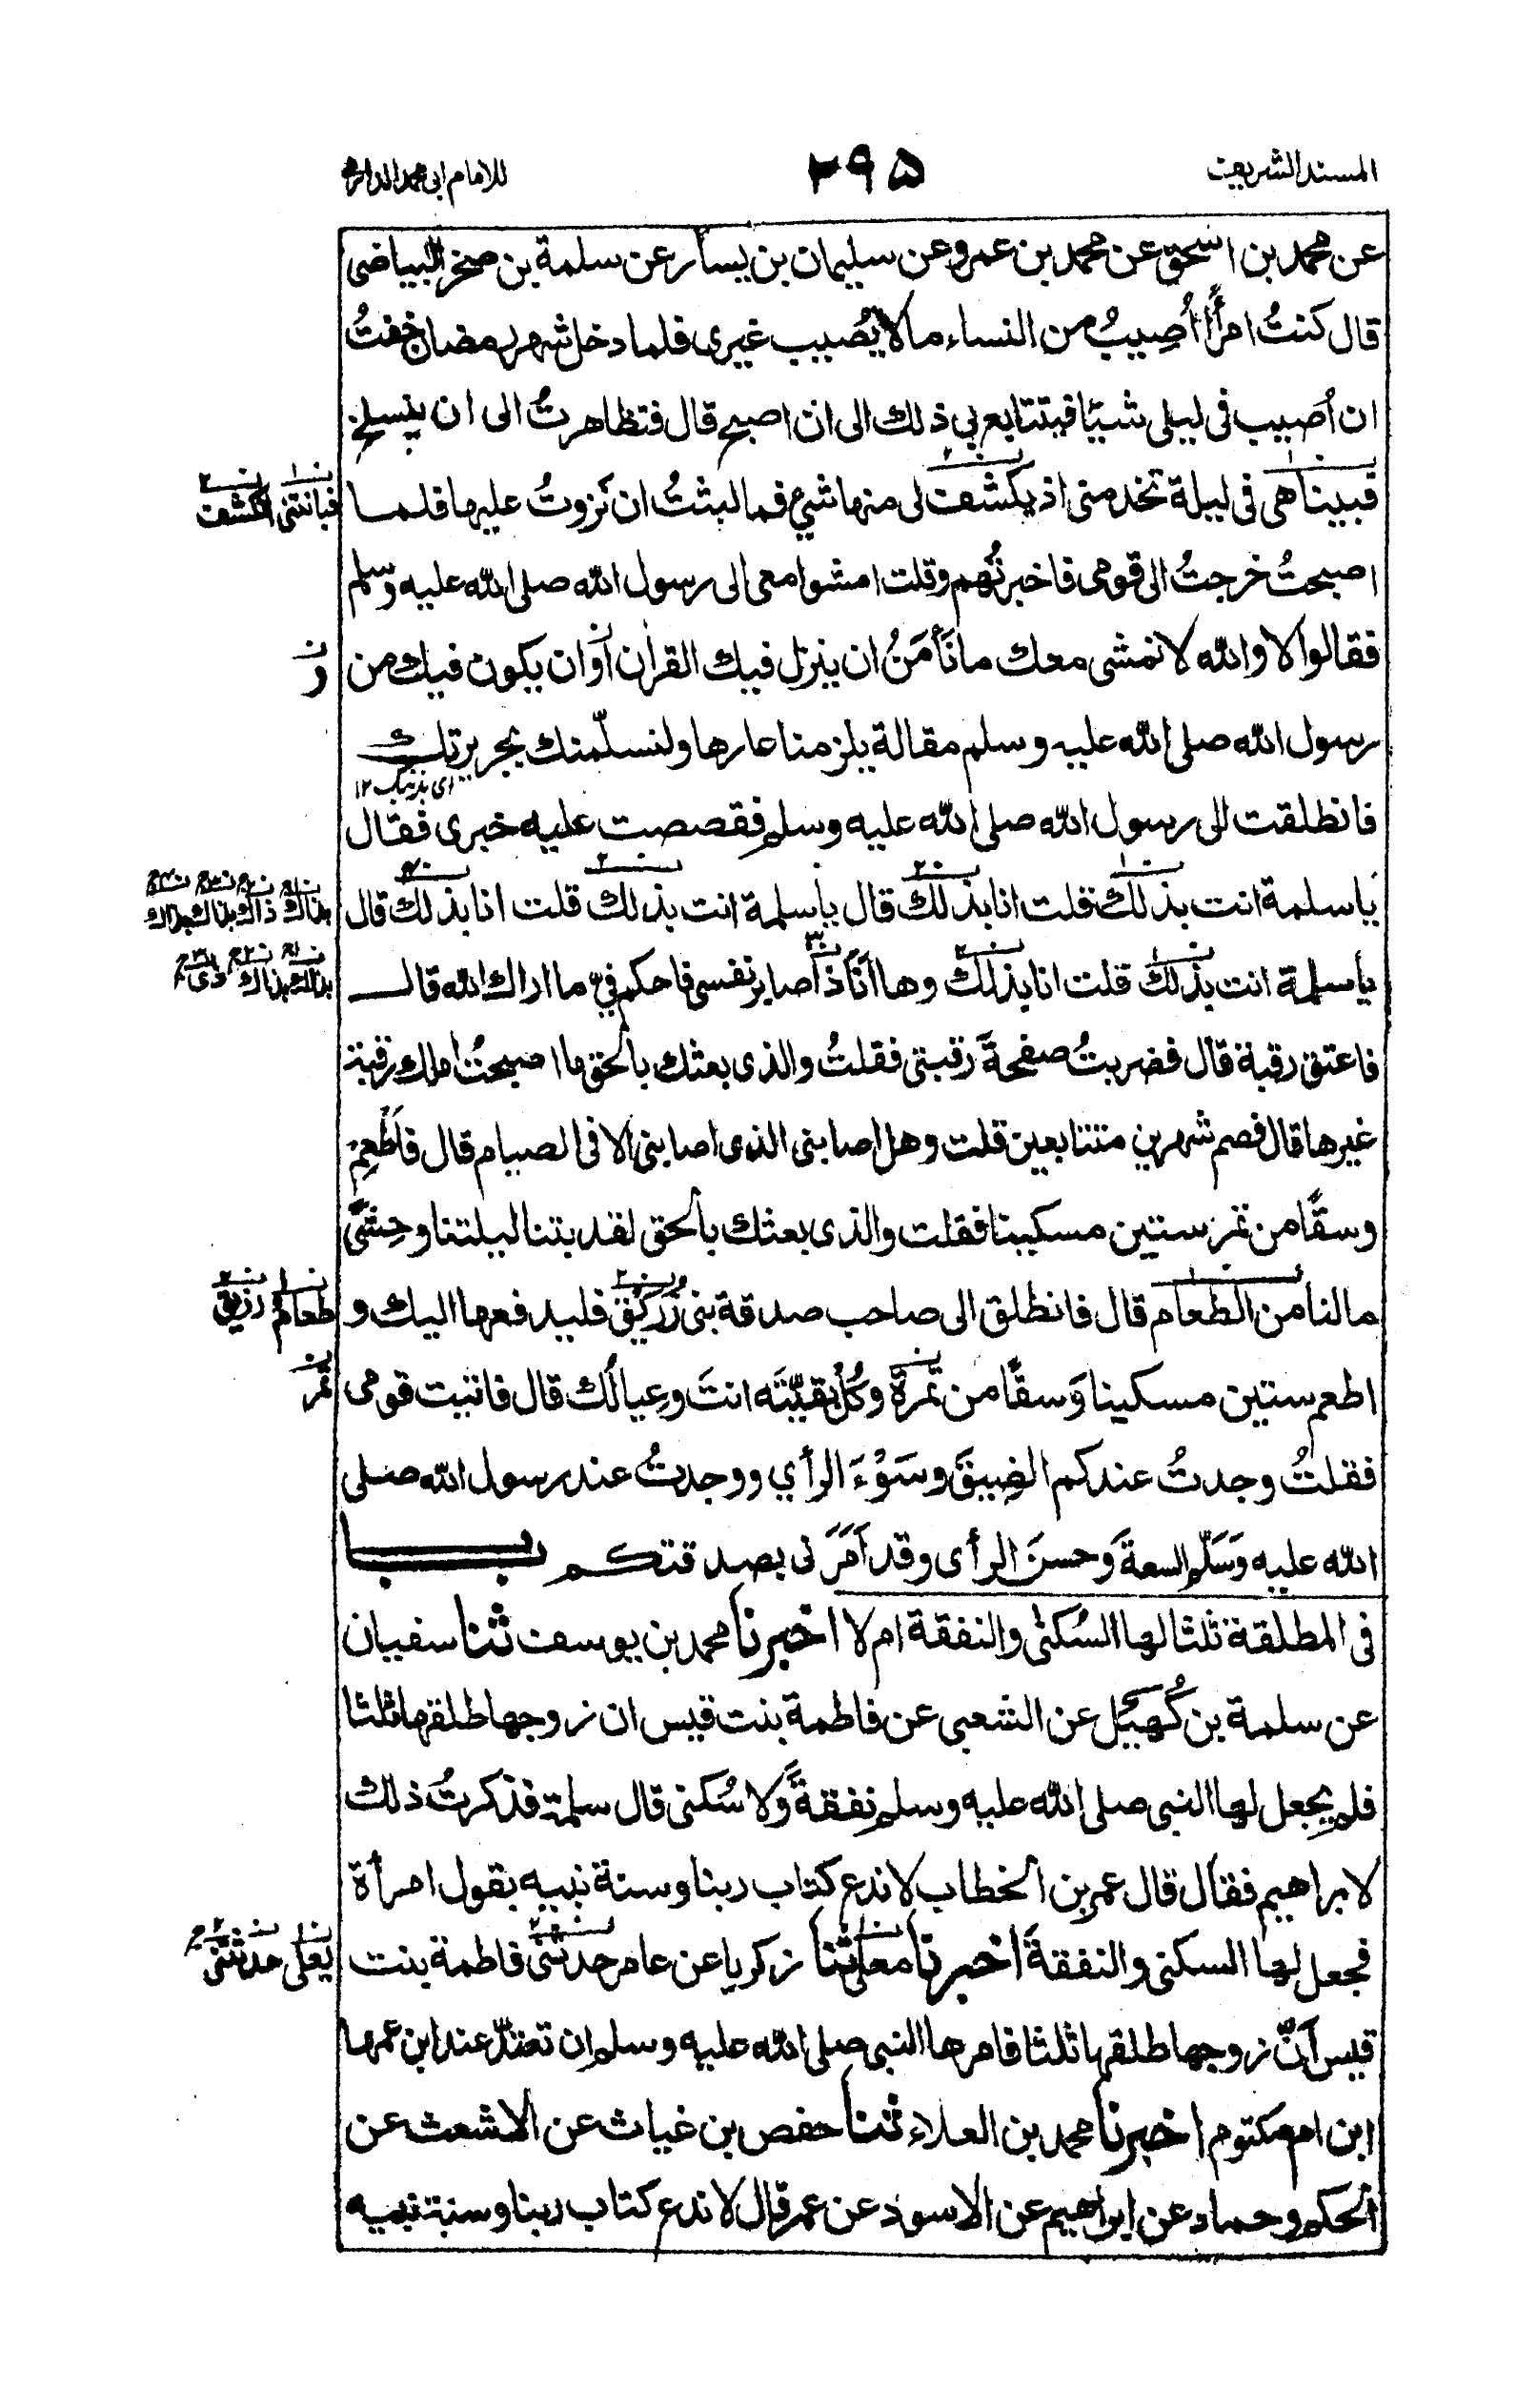 المسند الشريف ٢٩٥ للامام ابى محمد الدارمى
عن محمد بن اسحق عن محمد بن عمرو عن سليمان بن يسار عن سلمة بن صخر البياضى
قال كنتُ امرأً أُصِيبُ من النساء مالا يُصيب غيرى فلما دخل شهر رمضان خفتُ
ان أصيب فى ليلى شيئا فيتتايع بي ذلك الى ان اصبح قال فتظاهرتُ الى ان ينسلخ
فبينا هى فى ليلة تخدمنى اذ يكشف لى منها شئ فما لبثتُ ان نزوتُ عليها فلما
فباتتنى انكشف
اصبحتُ خرجتُ الى قومى فاخبرتُهم وقلت امشوا معى الى رسول الله صلى الله عليه وسلم
فقالوا لا والله لا نمشى معك ما نَأمَنُ ان ينزل فيك القران أو ان يكون فيك من
و
رسول الله صلى الله عليه وسلم مقالة يلزمنا عارها ولنسلّمنك بجريرتك
اى بذنبك ١٢
فانطلقت الى رسول الله صلى الله عليه وسلم فقصصت عليه خبرى فقال
يا سلمة انت بذلك قلت انا بذلك قال يا سلمة انت بذلك قلت انا بذلك قال
بذاك ذاك بذاك بذاك
يا سلمة انت بذلك قلت انا بذلك وها أنا ذا صابر نفسى فاحكم فيّ ما اراك الله قال
بذاك بذاك ذى
فاعتق رقبة قال فضربتُ صفحةَ رقبتى فقلتُ والذى بعثك بالحق ما اصبحتُ املك رقبة
غيرها قال فصم شهرين متتابعين قلت وهل اصابنى الذى اصابنى الا فى الصيام قال فأطعِم
وسقًا من تمر ستين مسكينا فقلت والذى بعثك بالحق لقد بتنا ليلتنا وحشى
مالنا من الطعام قال فانطلق الى صاحب صدقة بنى زُرَيْق فليدفعها اليك و
طعام رزيق
اطعم ستين مسكينا وَسقًا من تمرة وكُلْ بقيّتَه انتَ وعِيالُك قال فاتيت قومى
تمر
فقلتُ وجدتُ عندكم الضِيقَ وسَوْءَ الرأي ووجدتُ عند رسول الله صلى
الله عليه وَسَلّم السعةَ وحسنَ الرأى وقد أمَرَنى بصدقتكم باب
فى المطلقة ثلثا لها السُكنى والنفقة ام لا اخبرنا محمد بن يوسف ثنا سفيان
عن سلمة بن كُهَيل عن الشعبى عن فاطمة بنت قيس ان زوجها طلقها ثلثا
فلم يجعل لها النبى صلى الله عليه وسلم نفقةً ولا سُكنى قال سلمة فذكرتُ ذلك
لابراهيم فقال قال عمر بن الخطاب لا ندع كتاب ربنا وسنة نبيه بقول امرأة
فجعل لها السكنى والنفقةَ اخبرنا معلى ثنا زكريا عن عامر حدثنى فاطمة بنت
يعلى حدثتنى
قيس أنّ زوجها طلقها ثلثا فامرها النبى صلى الله عليه وسلم ان تعتدّ عند ابن عمها
ابن ام مكتوم اخبرنا محمد بن العلاء ثنا حفص بن غياث عن الاشعث عن
الحكم وحماد عن ابراهيم عن الاسود عن عمر قال لا ندع كتاب ربنا وسنة نبيه